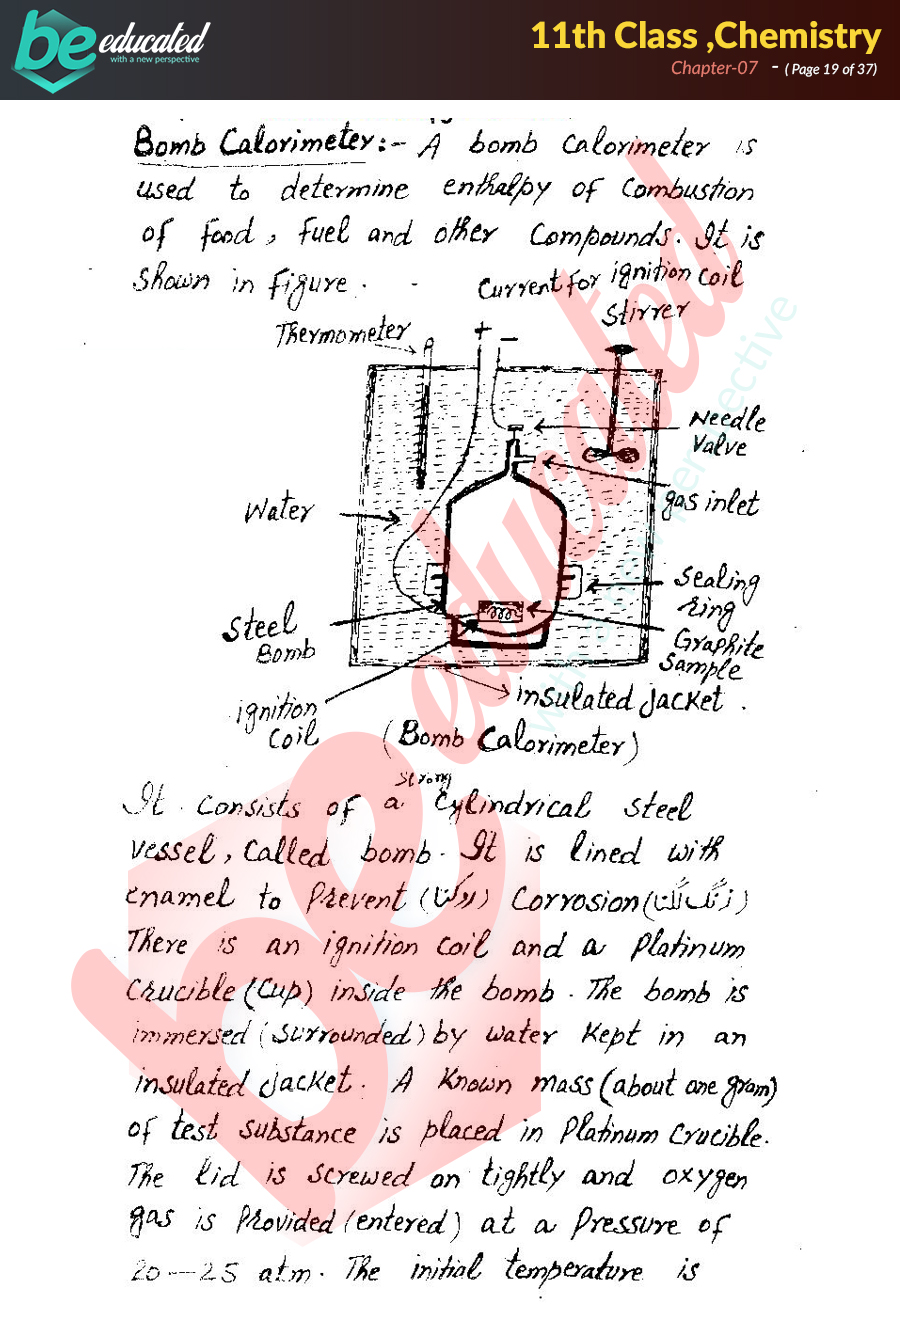 be educated
with a new perspective
11th Class ,Chemistry
Chapter-07 - ( Page 19 of 37)
Bomb Calorimeter:- A bomb Calorimeter is
used to determine enthalpy of Combustion
of food, fuel and other Compounds. It is
shown in figure.
Current for ignition coil
Stirrer
Thermometer
+ -
Needle
Valve
gas inlet
Water
Sealing
ring
Steel
Bomb
Graphite
Sample
insulated jacket.
ignition
Coil
(Bomb Calorimeter)
It consists of a strong cylindrical steel
vessel, Called bomb. It is lined with
enamel to Prevent (روکنا) Corrosion (زنگ لگنا)
There is an ignition coil and a Platinum
Crucible (Cup) inside the bomb. The bomb is
immersed (surrounded) by water kept in an
insulated jacket. A known mass (about one gram)
of test substance is placed in Platinum Crucible.
The lid is screwed on tightly and oxygen
gas is Provided (entered) at a Pressure of
20—25 atm. The initial temperature is
be educated
with a new perspective